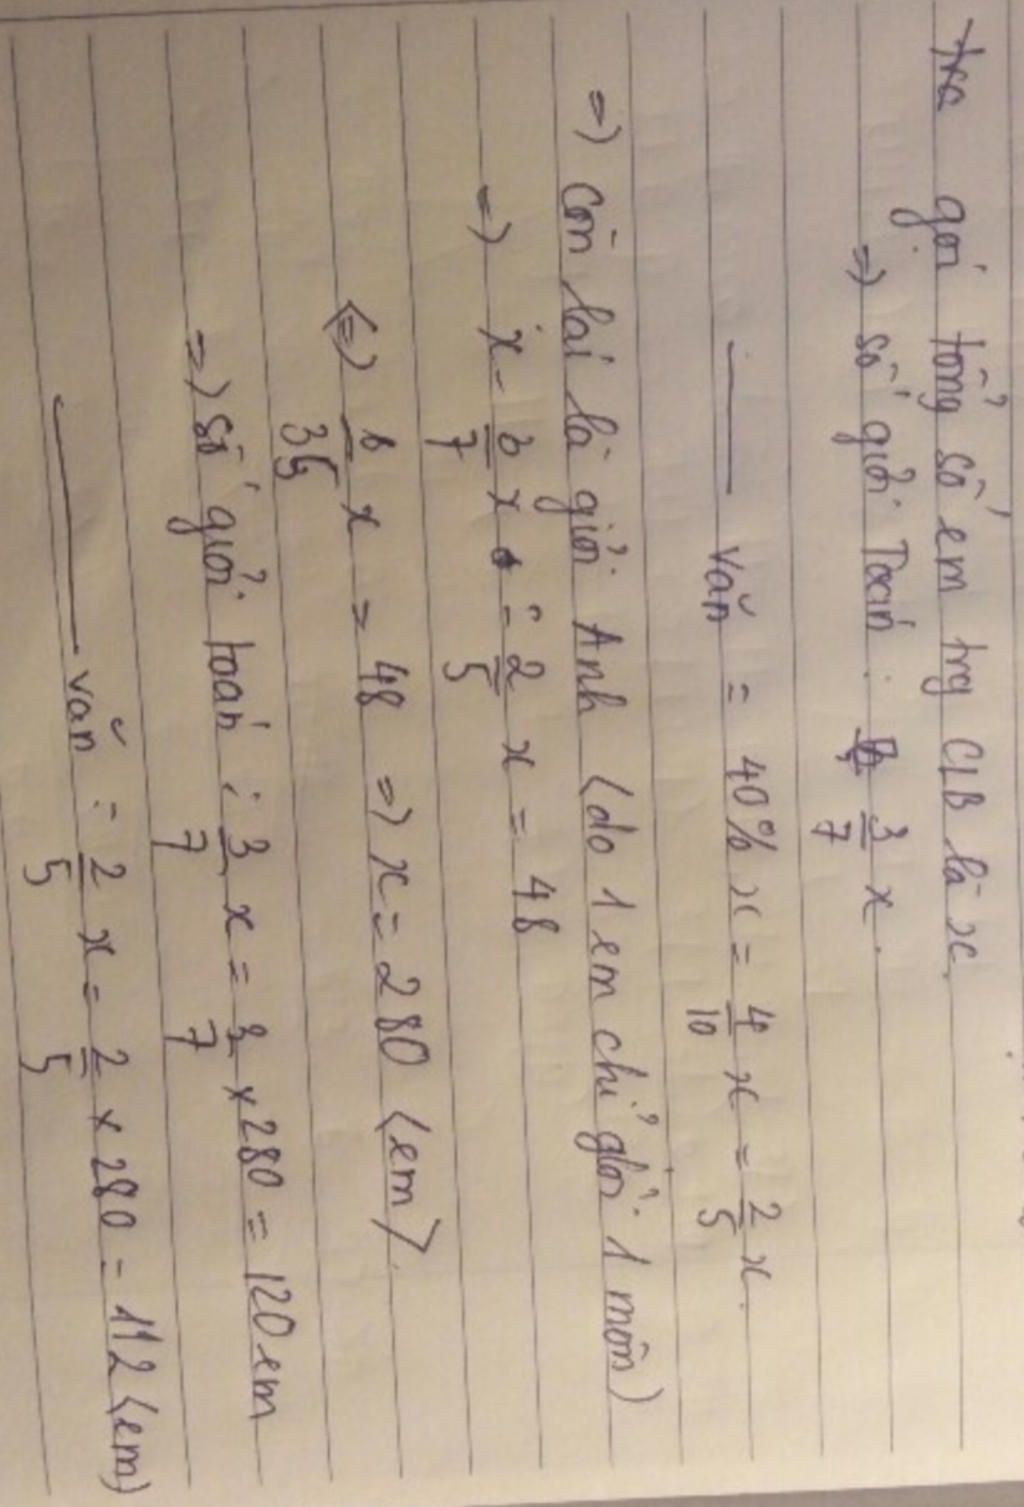 gọi tổng số em trg CLB là x.
=) số giỏi Toán : 3/7 x.
—— Văn = 40% x = 4/10 x = 2/5 x.
=) Còn lại là giỏi Anh (do 1 em chỉ giỏi 1 môn)
=) x - 3/7 x - 2/5 x = 48
(=) 6/35 x = 48 =) x = 280 (em)
=) số giỏi toán : 3/7 x = 3/7 × 280 = 120 em
—— văn : 2/5 x = 2/5 × 280 = 112 (em)